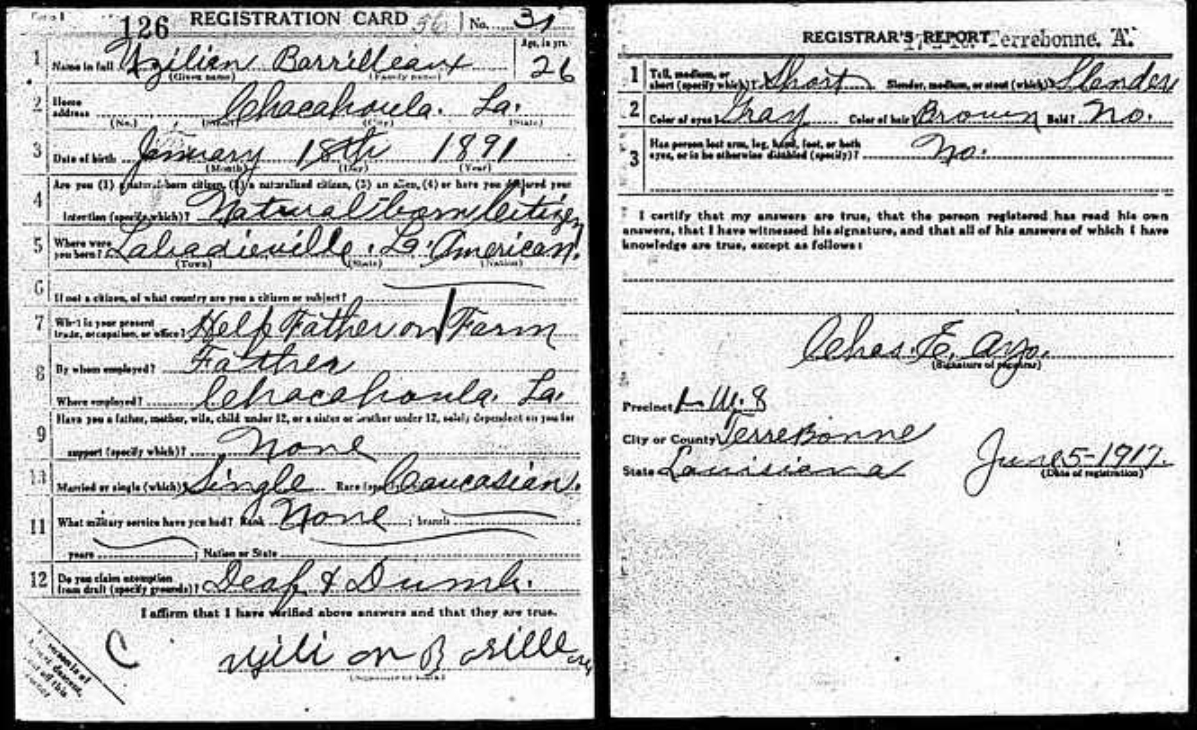 126 REGISTRATION CARD 56 No. 31
1 Name in full Ugilien Barrilleaux Age, in yrs. 26
(Given name) (Family name)
2 Home address Chacahoula. La.
(No.) (Street) (City) (State)
3 Date of birth January 18th 1891
(Month) (Day) (Year)
4 Are you (1) a natural-born citizen, (2) a naturalized citizen, (3) an alien, (4) or have you declared your
intention (specify which)? Natural born Citizen
5 Where were you born? Labadieville. La. American.
(Town) (State) (Nation)
6 If not a citizen, of what country are you a citizen or subject?
7 What is your present trade, occupation, or office? Help Father on Farm
8 By whom employed? Father
Where employed? Chacahoula. La.
9 Have you a father, mother, wife, child under 12, or a sister or brother under 12, solely dependent on you for
support (specify which)? None
10 Married or single (which)? Single Race (specify which)? Caucasian.
11 What military service have you had? Rank None ; branch
years ; Nation or State
12 Do you claim exemption from draft (specify grounds)? Deaf & Dumb.
I affirm that I have verified above answers and that they are true.
C
(Signature or mark)
REGISTRAR'S REPORT Terrebonne. A.
1 Tall, medium, or short (specify which)? Short Slender, medium, or stout (which)? Slender
2 Color of eyes? Gray Color of hair? Brown Bald? No.
3 Has person lost arm, leg, hand, foot, or both eyes, or is he otherwise disabled (specify)? No.
I certify that my answers are true, that the person registered has read his own
answers, that I have witnessed his signature, and that all of his answers of which I have
knowledge are true, except as follows:
Chas. E. Ayo.
(Signature of registrar)
Precinct W. 8
City or County TerreBonne
State Louisiana June 5-1917.
(Date of registration)